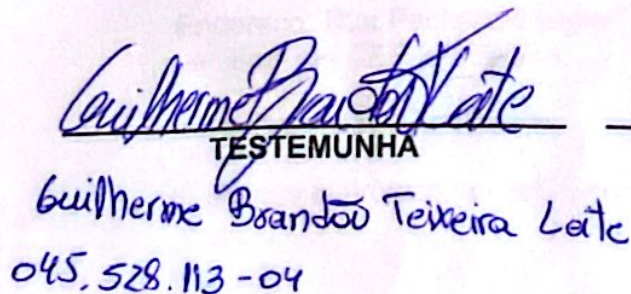 Guilherme Brandão T Leite
TESTEMUNHA
Guilherme Brandão Teixeira Leite
045.528.113-04